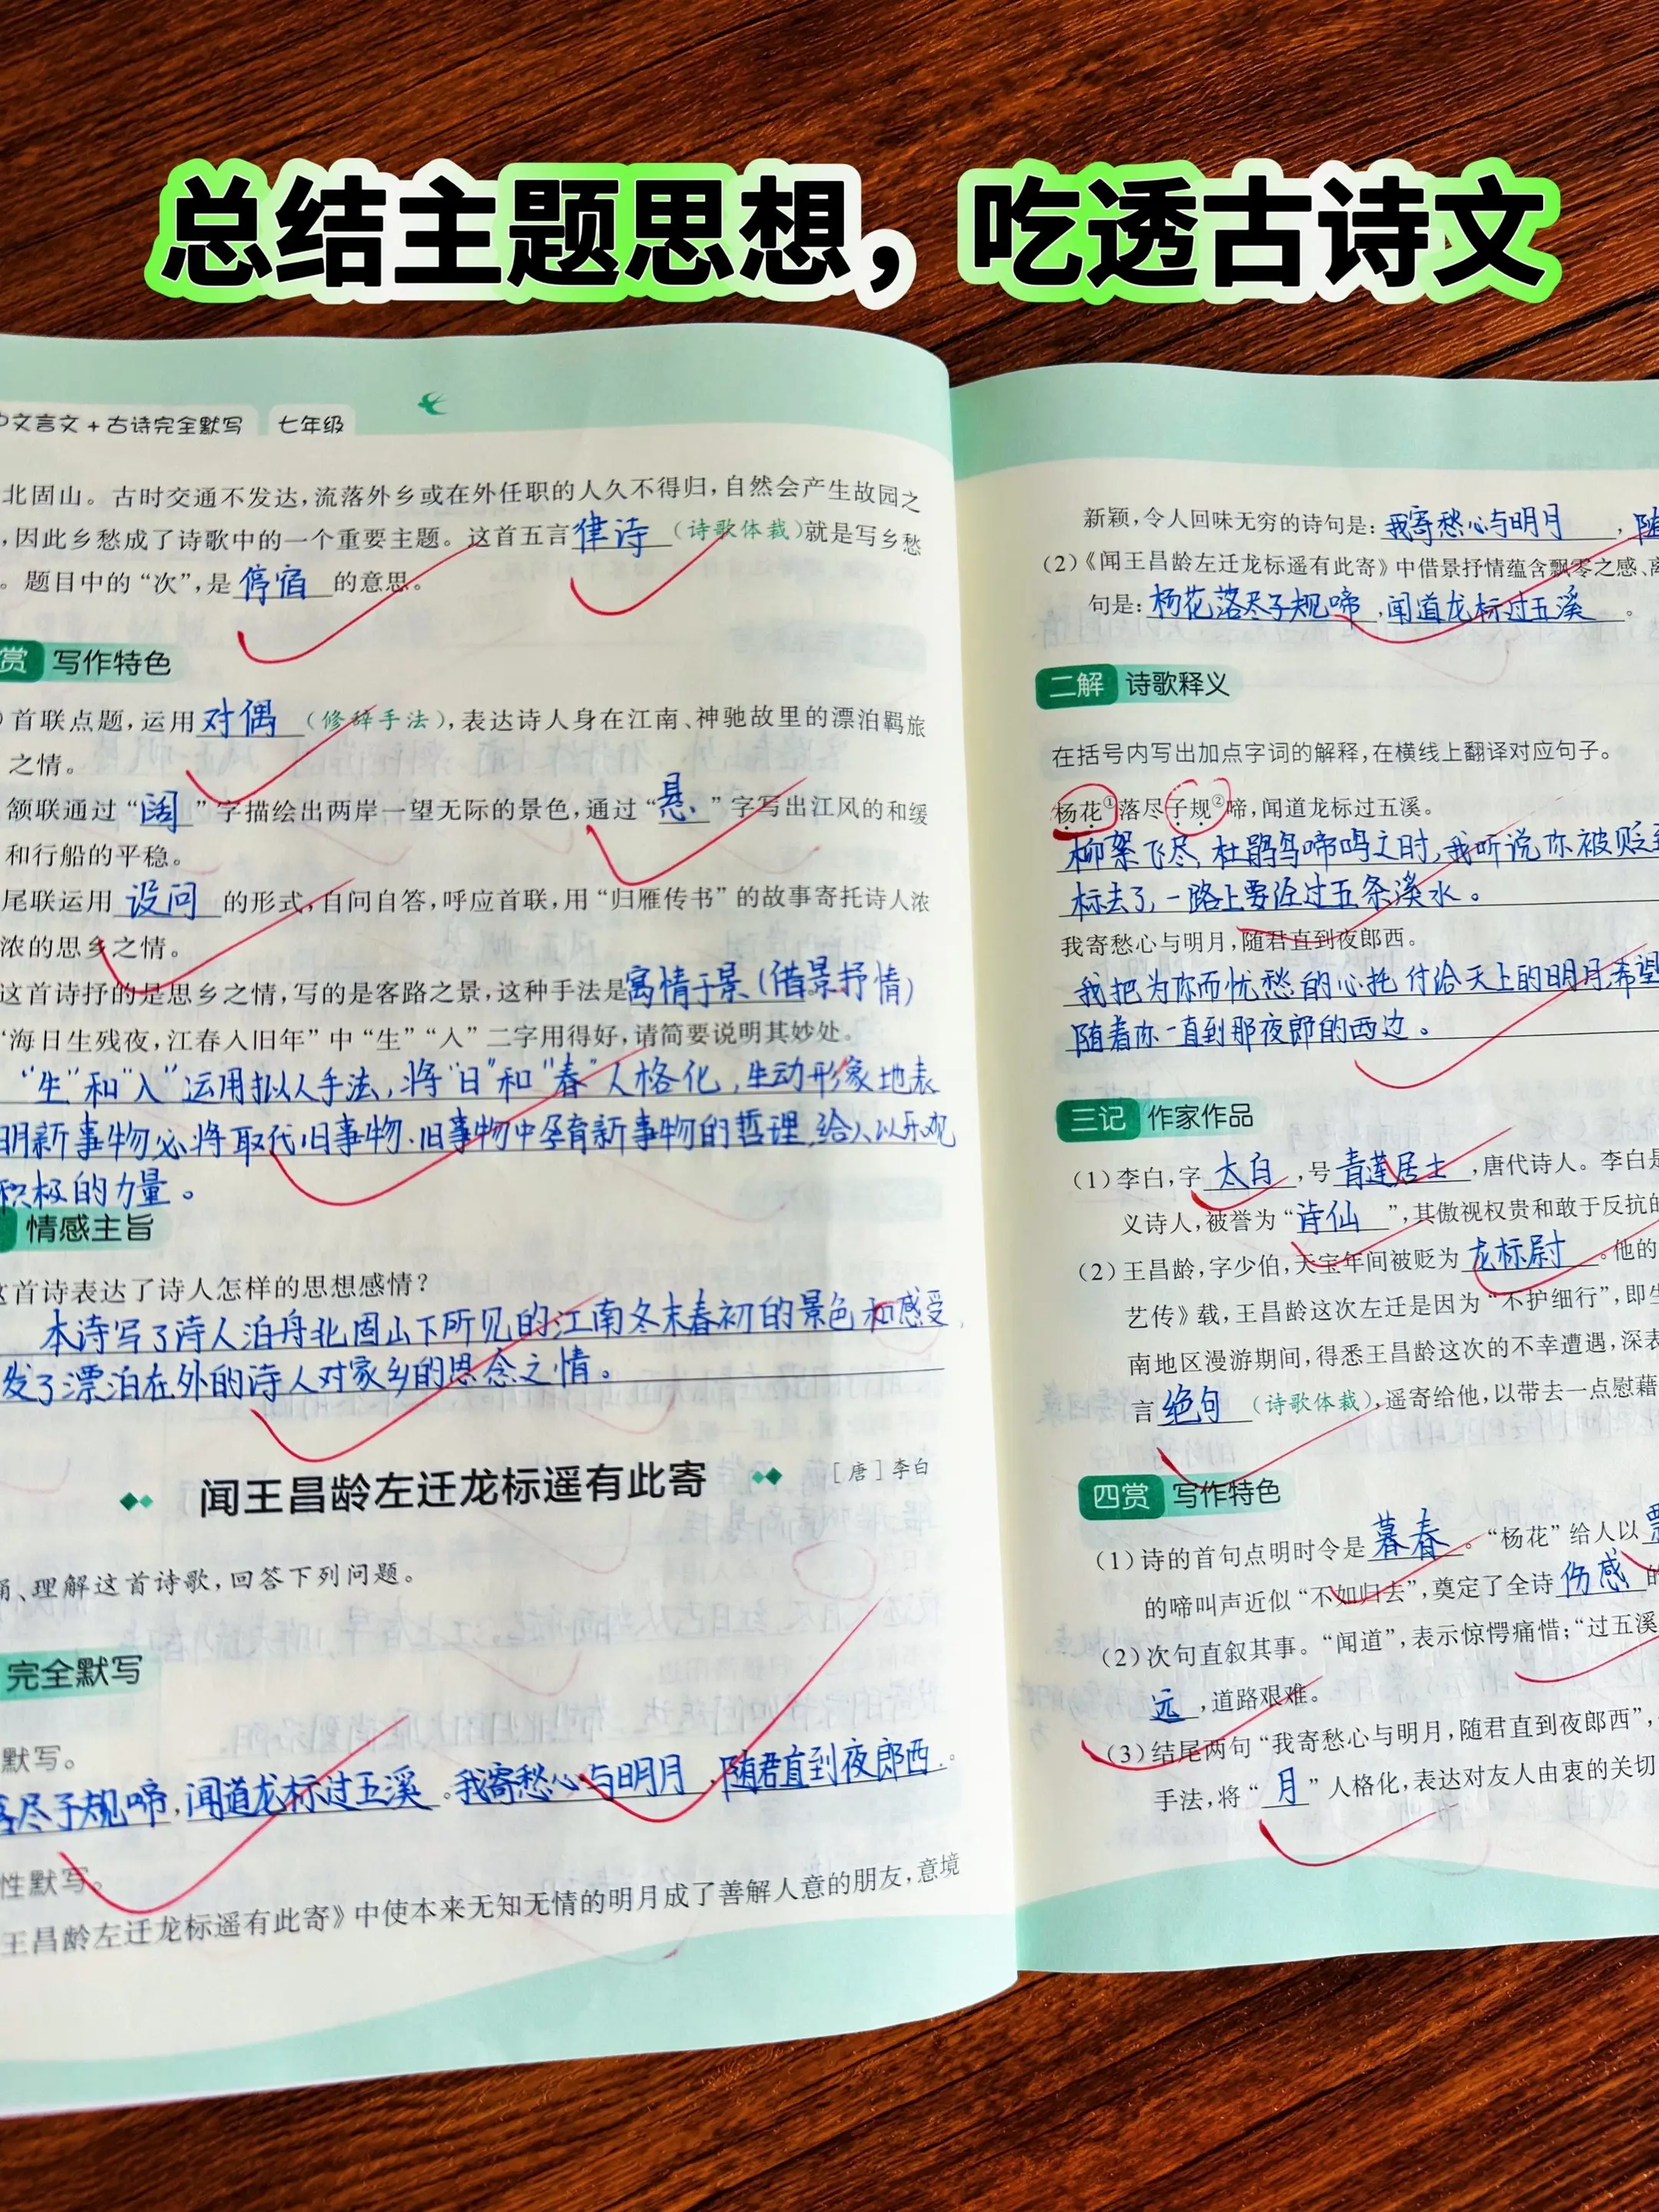 总结主题思想，吃透古诗文
中文言文+古诗完全默写 七年级
北固山。古时交通不发达，流落外乡或在外任职的人久不得归，自然会产生故园之
，因此乡愁成了诗歌中的一个重要主题。这首五言律诗（诗歌体裁）就是写乡愁
。题目中的“次”，是停宿的意思。
赏 写作特色
）首联点题，运用对偶（修辞手法），表达诗人身在江南、神驰故里的漂泊羁旅
之情。
颔联通过“阔”字描绘出两岸一望无际的景色，通过“悬”字写出江风的和缓
和行船的平稳。
尾联运用设问的形式，自问自答，呼应首联，用“归雁传书”的故事寄托诗人浓
浓的思乡之情。
这首诗抒的是思乡之情，写的是客路之景，这种手法是寓情于景（借景抒情）
“海日生残夜，江春入旧年”中“生”“入”二字用得好，请简要说明其妙处。
“生”和“入”运用拟人手法，将“日”和“春”人格化，生动形象地表
明新事物必将取代旧事物、旧事物中孕育新事物的哲理，给人以乐观
积极的力量。
情感主旨
这首诗表达了诗人怎样的思想感情？
本诗写了诗人泊舟北固山下所见的江南冬末春初的景色和感受，
发了漂泊在外的诗人对家乡的思念之情。
闻王昌龄左迁龙标遥有此寄 ［唐］李白
诵、理解这首诗歌，回答下列问题。
完全默写
默写。
落尽子规啼，闻道龙标过五溪。我寄愁心与明月，随君直到夜郎西。
性默写。
王昌龄左迁龙标遥有此寄》中使本来无知无情的明月成了善解人意的朋友，意境
新颖，令人回味无穷的诗句是：我寄愁心与明月，随
（2）《闻王昌龄左迁龙标遥有此寄》中借景抒情蕴含飘零之感、离
句是：杨花落尽子规啼，闻道龙标过五溪。
二解 诗歌释义
在括号内写出加点字词的解释，在横线上翻译对应句子。
杨花①落尽子规②啼，闻道龙标过五溪。
柳絮飞尽，杜鹃鸟啼鸣之时，我听说你被贬到
标去了，一路上要经过五条溪水。
我寄愁心与明月，随君直到夜郎西。
我把为你而忧愁的心托付给天上的明月，希望
随着你一直到那夜郎的西边。
三记 作家作品
（1）李白，字太白，号青莲居士，唐代诗人。李白是
义诗人，被誉为“诗仙”，其傲视权贵和敢于反抗的
（2）王昌龄，字少伯，天宝年间被贬为龙标尉。他的
艺传》载，王昌龄这次左迁是因为“不护细行”，即生
南地区漫游期间，得悉王昌龄这次的不幸遭遇，深表
言绝句（诗歌体裁），遥寄给他，以带去一点慰藉
四赏 写作特色
（1）诗的首句点明时令是暮春。“杨花”给人以飘
的啼叫声近似“不如归去”，奠定了全诗伤感的
（2）次句直叙其事。“闻道”，表示惊愕痛惜；“过五溪
远，道路艰难。
（3）结尾两句“我寄愁心与明月，随君直到夜郎西”，
手法，将“月”人格化，表达对友人由衷的关切